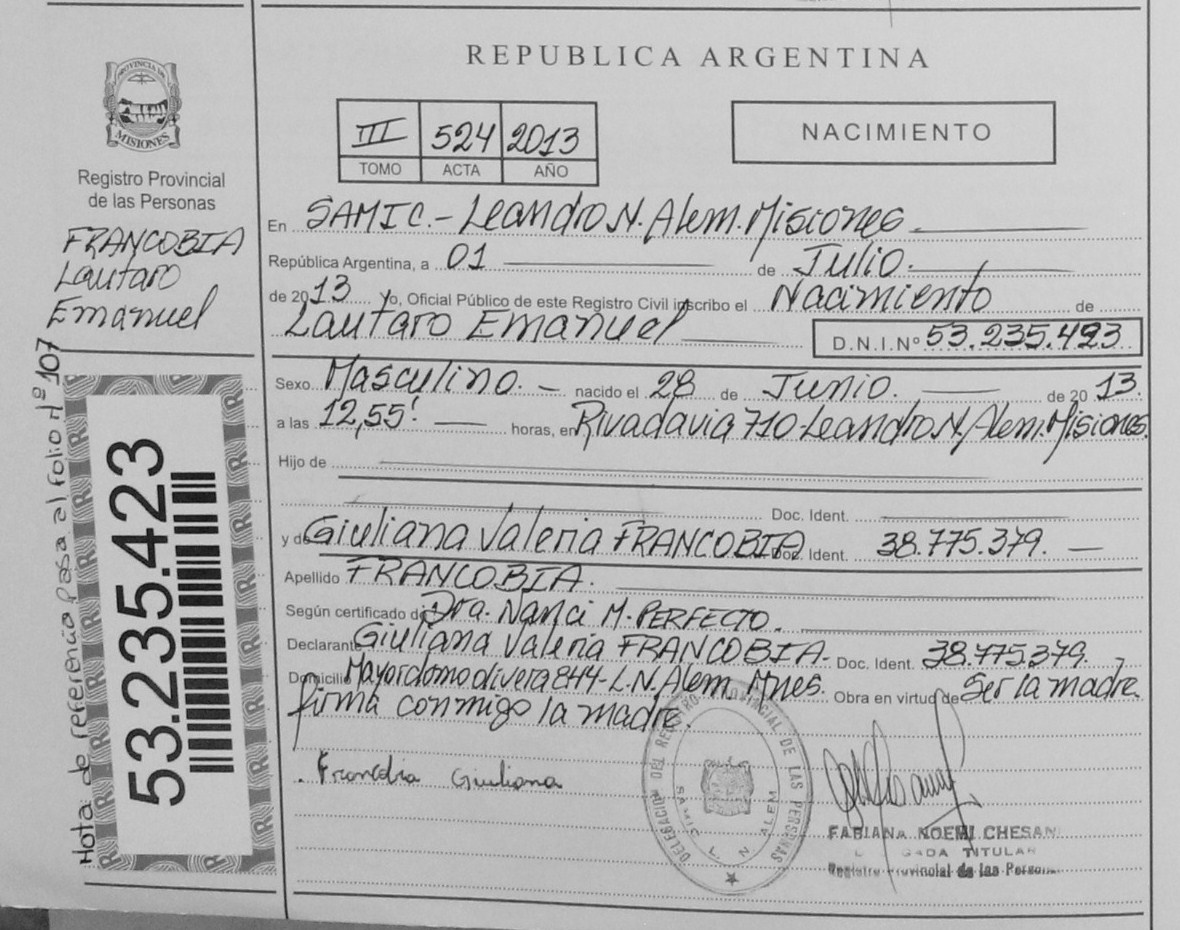 REPUBLICA ARGENTINA
PROVINCIA DE
MISIONES
Registro Provincial
de las Personas
FRANCOBIA
Lautaro
Emanuel
III 524 2013
TOMO ACTA AÑO
NACIMIENTO
En SAMIC.- Leandro N. Alem. Misiones
República Argentina, a 01 de Julio.
de 2013 Yo, Oficial Público de este Registro Civil inscribo el Nacimiento de
Lautaro Emanuel D.N.I.Nº 53.235.423
Sexo Masculino. nacido el 28 de Junio. de 20 13.
a las 12,55' horas, en Rivadavia 710-Leandro N. Alem. Misiones.
Hijo de
Doc. Ident.
y de Giuliana Valeria FRANCOBIA Doc. Ident. 38.775.379.
Apellido FRANCOBIA.
Según certificado de Dra. Nanci M. PERFECTO.
Declarante Giuliana Valeria FRANCOBIA. Doc. Ident. 38.775.379.
Domicilio Mayordomo 844-L.N. Alem. Mnes. Obra en virtud de Ser la madre.
firma conmigo la madre.
Francobia Giuliana
DELEGACION DEL REGISTRO PROVINCIAL DE LAS PERSONAS
SAMIC L. N. ALEM
FABIANA NOEMI CHESANI
TITULAR
Registro Provincial de las Personas
Nota de referencia pasa al folio nº 107
53.235.423